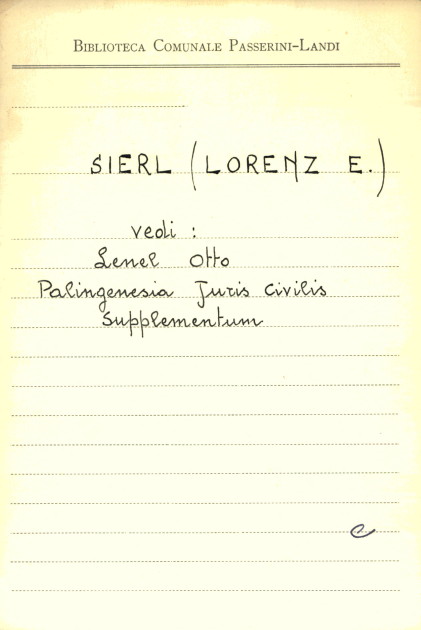 Biblioteca Comunale Passerini-Landi
SIERL (LORENZ E.)
vedi :
Lenel Otto
Palingenesia Juris Civilis
Supplementum
e